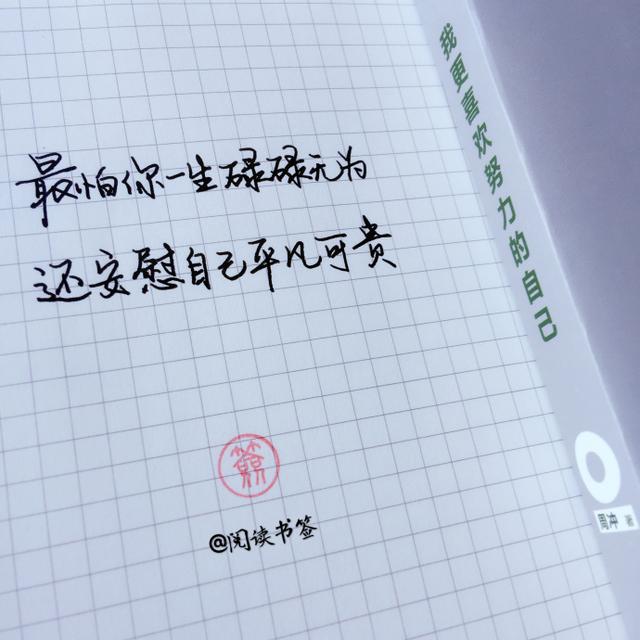 最怕你一生碌碌无为
还安慰自己平凡可贵
签
@阅读书签
我更喜欢努力的自己
周冲 著